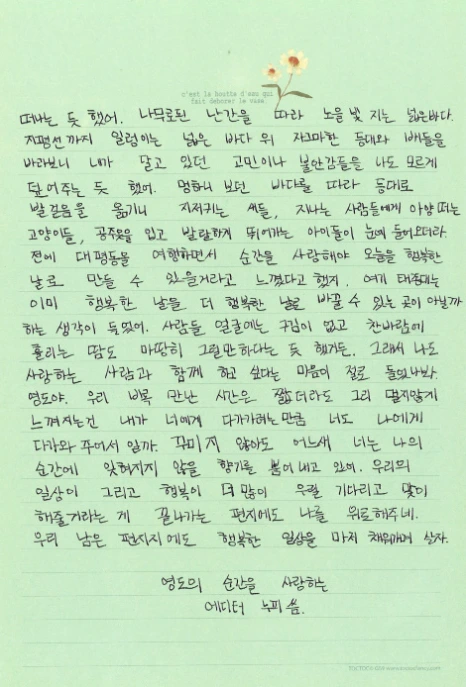 c'est la goutte d'eau qui
fait deborer le vase.
떠나는 듯 했어. 나무로된 난간을 따라 노을 빛 지는 넓은바다.
지평선까지 일렁이는 넓은 바다 위 자그마한 등대와 배들을
바라보니 내가 달고 있던 고민이나 불안감들을 나도 모르게
덮어주는 듯 했어. 멍하니 보던 바다를 따라 등대로
발걸음을 옮기니 지저귀는 새들, 지나는 사람들에게 아양 떠는
고양이들, 공주옷을 입고 발랄하게 뛰어가는 아이들이 눈에 들어오더라.
전에 대평동을 여행하면서 순간을 사랑해야 오늘을 행복한
날로 만들 수 있을거라고 느꼈다고 했지. 여기 태종대는
이미 행복한 날을 더 행복한 날로 바꿀 수 있는 곳이 아닐까
하는 생각이 들었어. 사람들 얼굴에는 구김이 없고 찬바람에
흘리는 땀도 마땅히 그럴만하다는 듯 했거든. 그래서 나도
사랑하는 사람과 함께 하고 싶다는 마음이 절로 들었나봐.
영도야. 우리 비록 만난 시간은 짧더라도 그리 멀지않게
느껴지는건 내가 너에게 다가가려는 만큼 너도 나에게
다가와 주어서 일까. 꾸미지 않아도 어느새 너는 나의
순간에 잊혀지지 않을 향기를 뿜어내고 있어. 우리의
일상이 그리고 행복이 더 많이 우릴 기다리고 맞이
해줄거라는 게 끝나가는 편지에도 나를 위로해주네.
우리 남은 편지지에도 행복한 일상을 마저 채워가며 살자.
영도의 순간을 사랑하는
에디터 누피 씀.